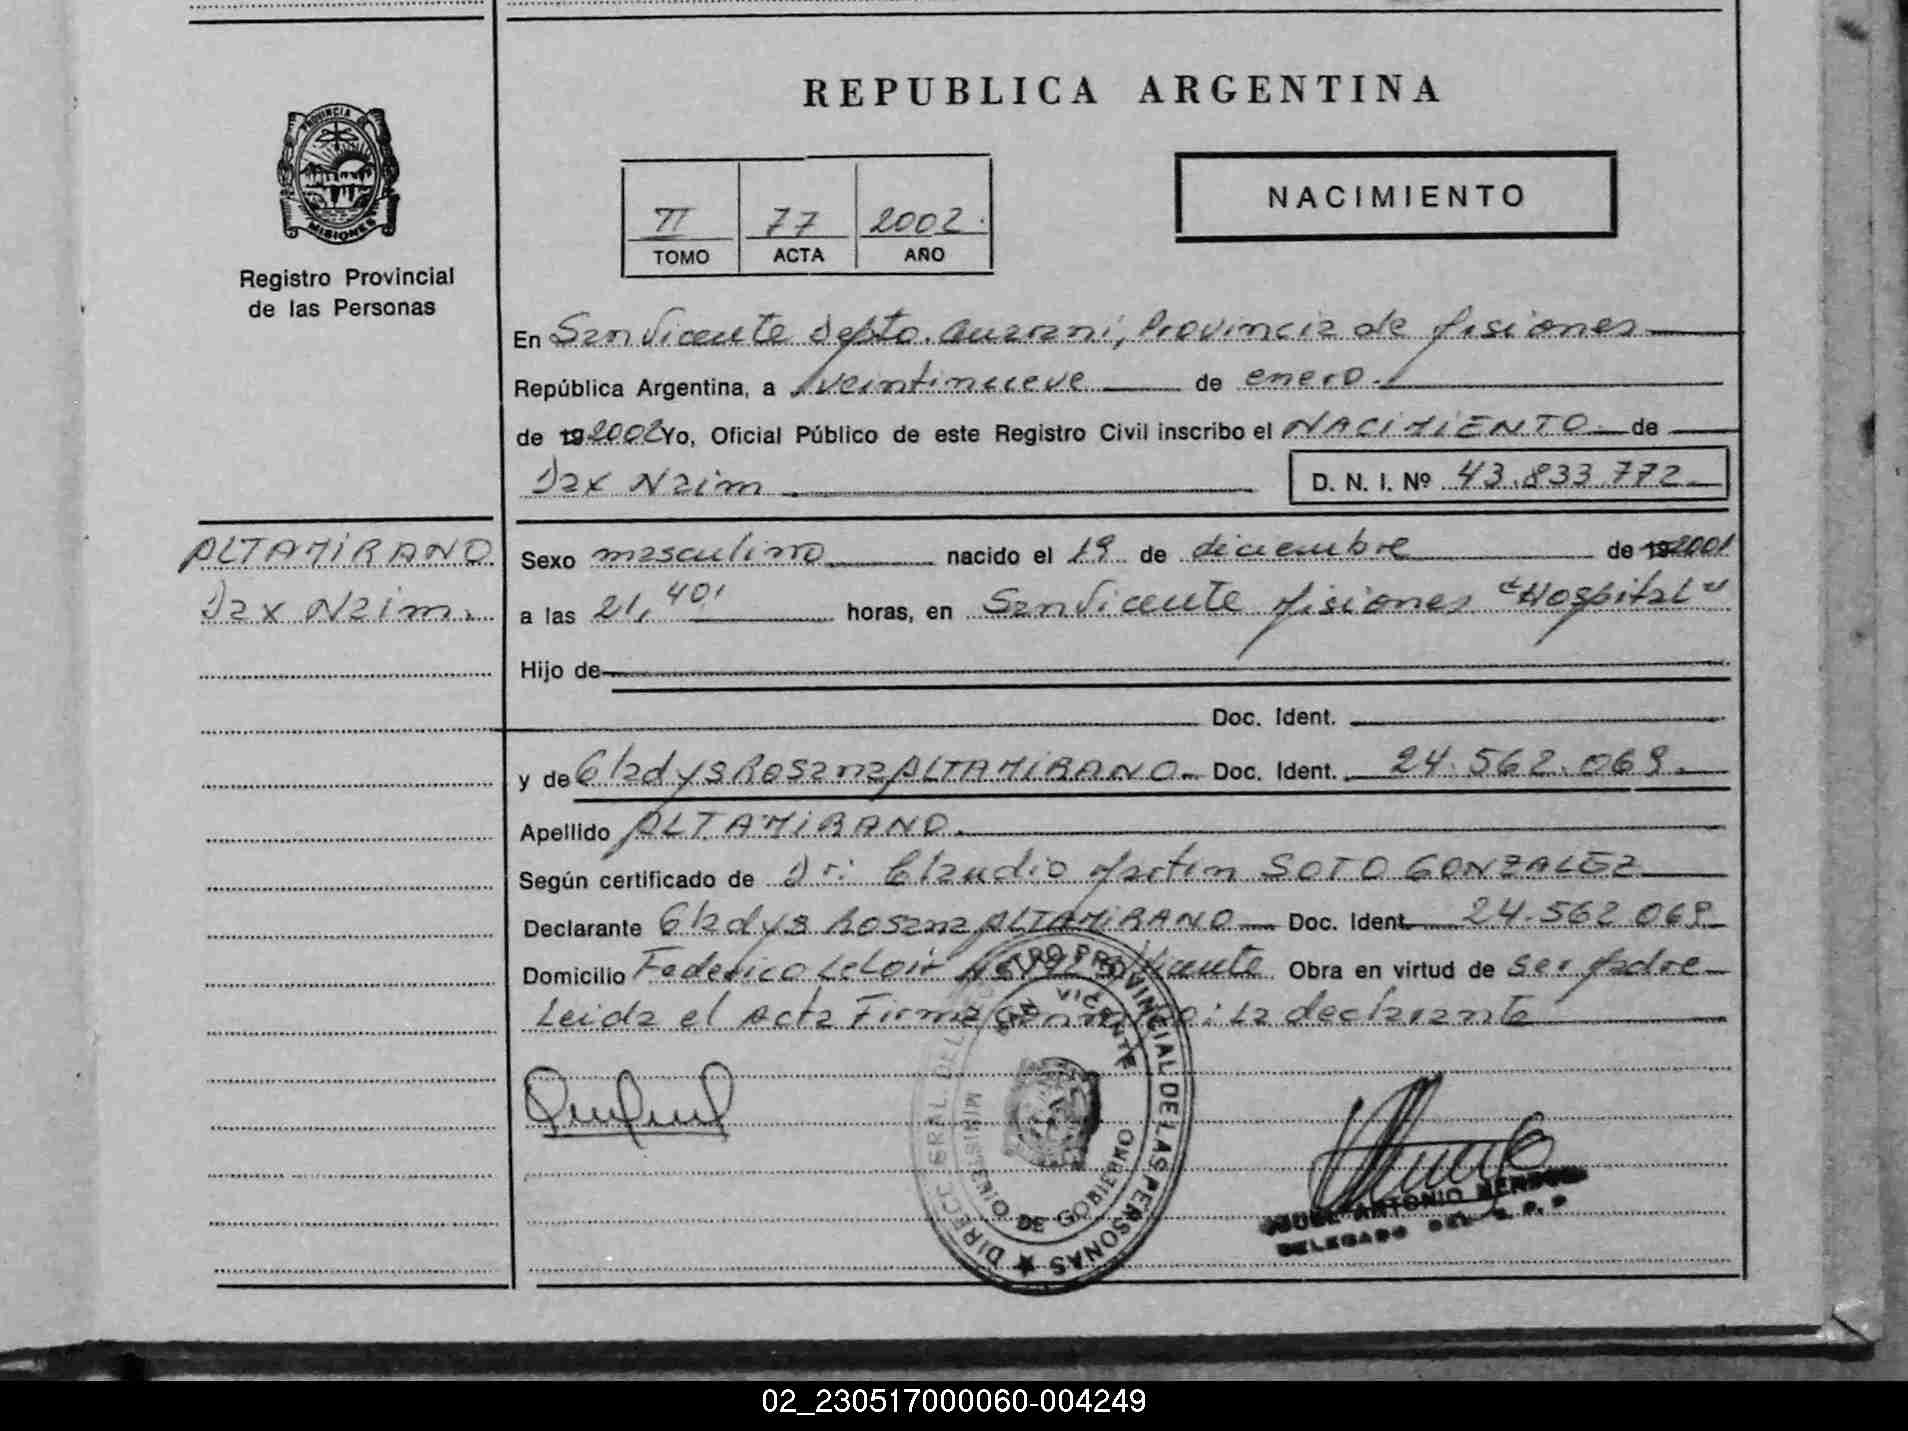 REPUBLICA ARGENTINA
PROVINCIA DE
MISIONES
Registro Provincial
de las Personas
II 77 2002.
TOMO ACTA AÑO
NACIMIENTO
En San Vicente Depto. Guarani, Provincia de Misiones
República Argentina, a veintinueve de enero.
de 19 2002 Yo, Oficial Público de este Registro Civil inscribo el NACIMIENTO de
Dax Naim D. N. I. Nº 43.833.772
ALTAMIRANO
Dax Naim.
Sexo masculino nacido el 19 de diciembre de 19 2001
a las 21,40' horas, en San Vicente Misiones "Hospital"
Hijo de
Doc. Ident.
y de Gladys Rosana ALTAMIRANO Doc. Ident. 24.562.069.
Apellido ALTAMIRANO.
Según certificado de Dr: Claudio Martin SOTO GONZALEZ
Declarante Gladys Rosana ALTAMIRANO Doc. Ident. 24.562.069
Domicilio Federico Leloir Vicente Obra en virtud de ser Madre
Leida el Acta Firma la declarante
PROVINCIAL DE LAS PERSONAS
VICENTE
MINISTERIO DE GOBIERNO
ANTONIO
DELEGADO DEL R. P. P
02_230517000060-004249